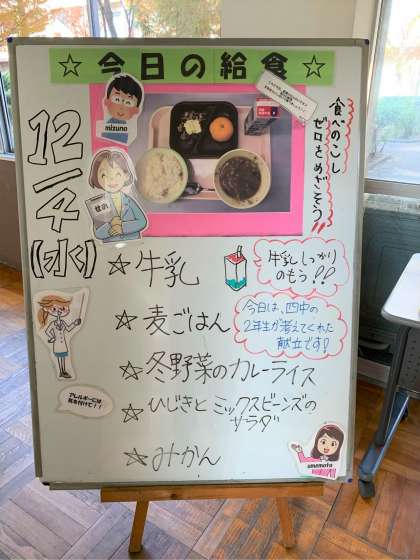 ☆今日の給食☆
mizuno
食べのこし
ゼロをめざそう!!
12/4
(水)
☆牛乳
牛乳しっかり
のもう!!
☆麦ごはん
今日は、四中の
2年生が考えてくれた
献立です!
☆冬野菜のカレーライス
アレルギーには
気を付けて!!
☆ひじきとミックスビーンズの
サラダ
☆みかん
umemoto